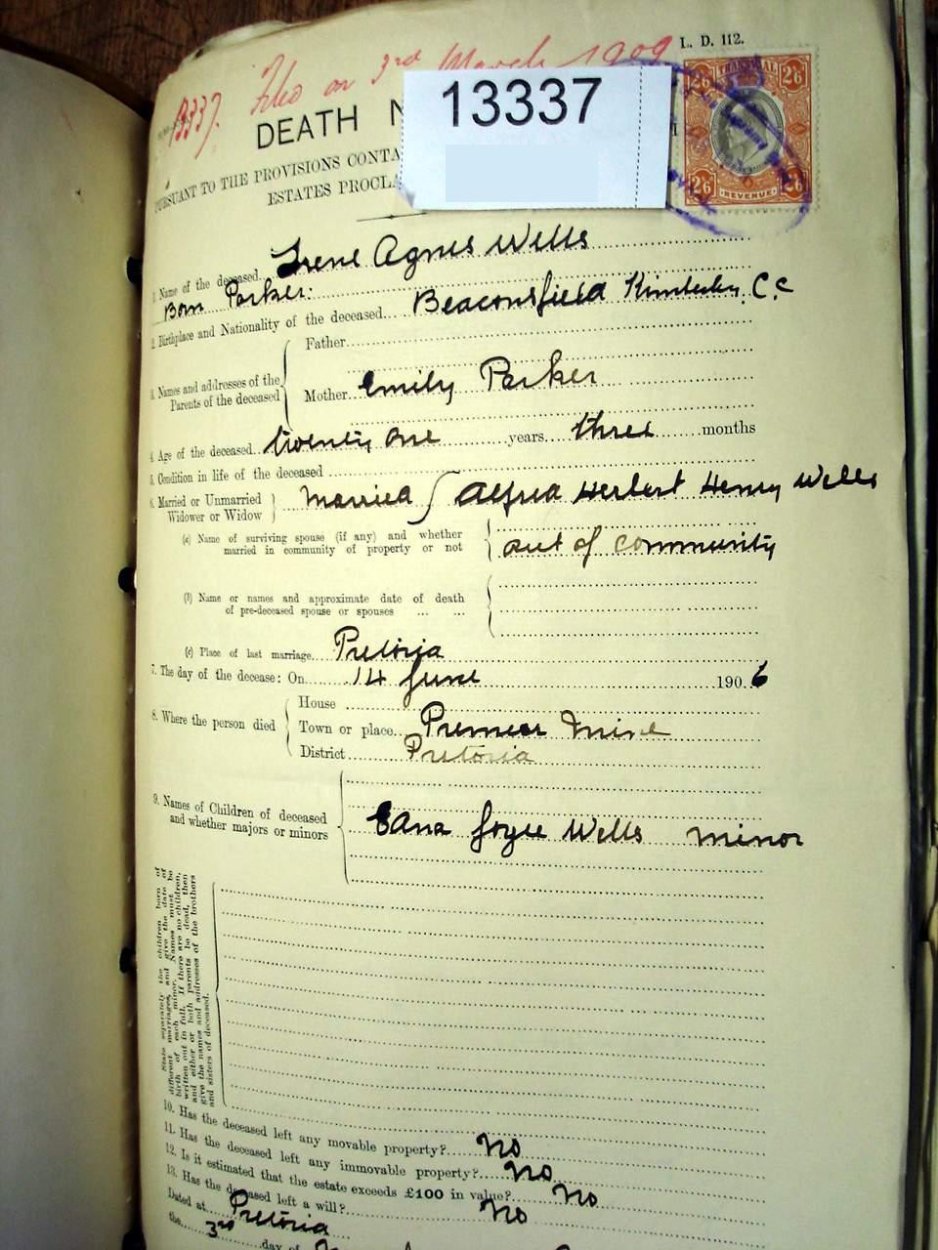 L. D. 112.
13337. Filed on 3rd March 1909
13337
DEATH N
PURSUANT TO THE PROVISIONS CONTA
ESTATES PROCLA
TRANSVAAL
2/6 2/6
2/6 REVENUE 2/6
1. Name of the deceased Irene Agnes Wells
Born Parker.
2. Birthplace and Nationality of the deceased Beaconsfield Kimberley, C.C
3. Names and addresses of the Parents of the deceased
Father
Mother Emily Parker
4. Age of the deceased twenty one years three months
5. Condition in life of the deceased
6. Married or Unmarried Widower or Widow married Alfred Herbert Henry Wells
(a) Name of surviving spouse (if any) and whether married in community of property or not out of community
(b) Name or names and approximate date of death of pre-deceased spouse or spouses ... ...
(c) Place of last marriage Pretoria
7. The day of the decease: On 14 June 1906
8. Where the person died
House
Town or place Premier Mine
District Pretoria
9. Names of Children of deceased and whether majors or minors Edna Joyce Wells minor
State separately the children born of
different marriages, and give the date of
birth of each minor. Names must be
written out in full. If there are no children,
and either or both parents be dead, then
give the names and addresses of the brothers
and sisters of deceased.
10. Has the deceased left any movable property? No
11. Has the deceased left any immovable property? No
12. Is it estimated that the estate exceeds £100 in value? No
13. Has the deceased left a will? No
Dated at Pretoria
the 3rd day of